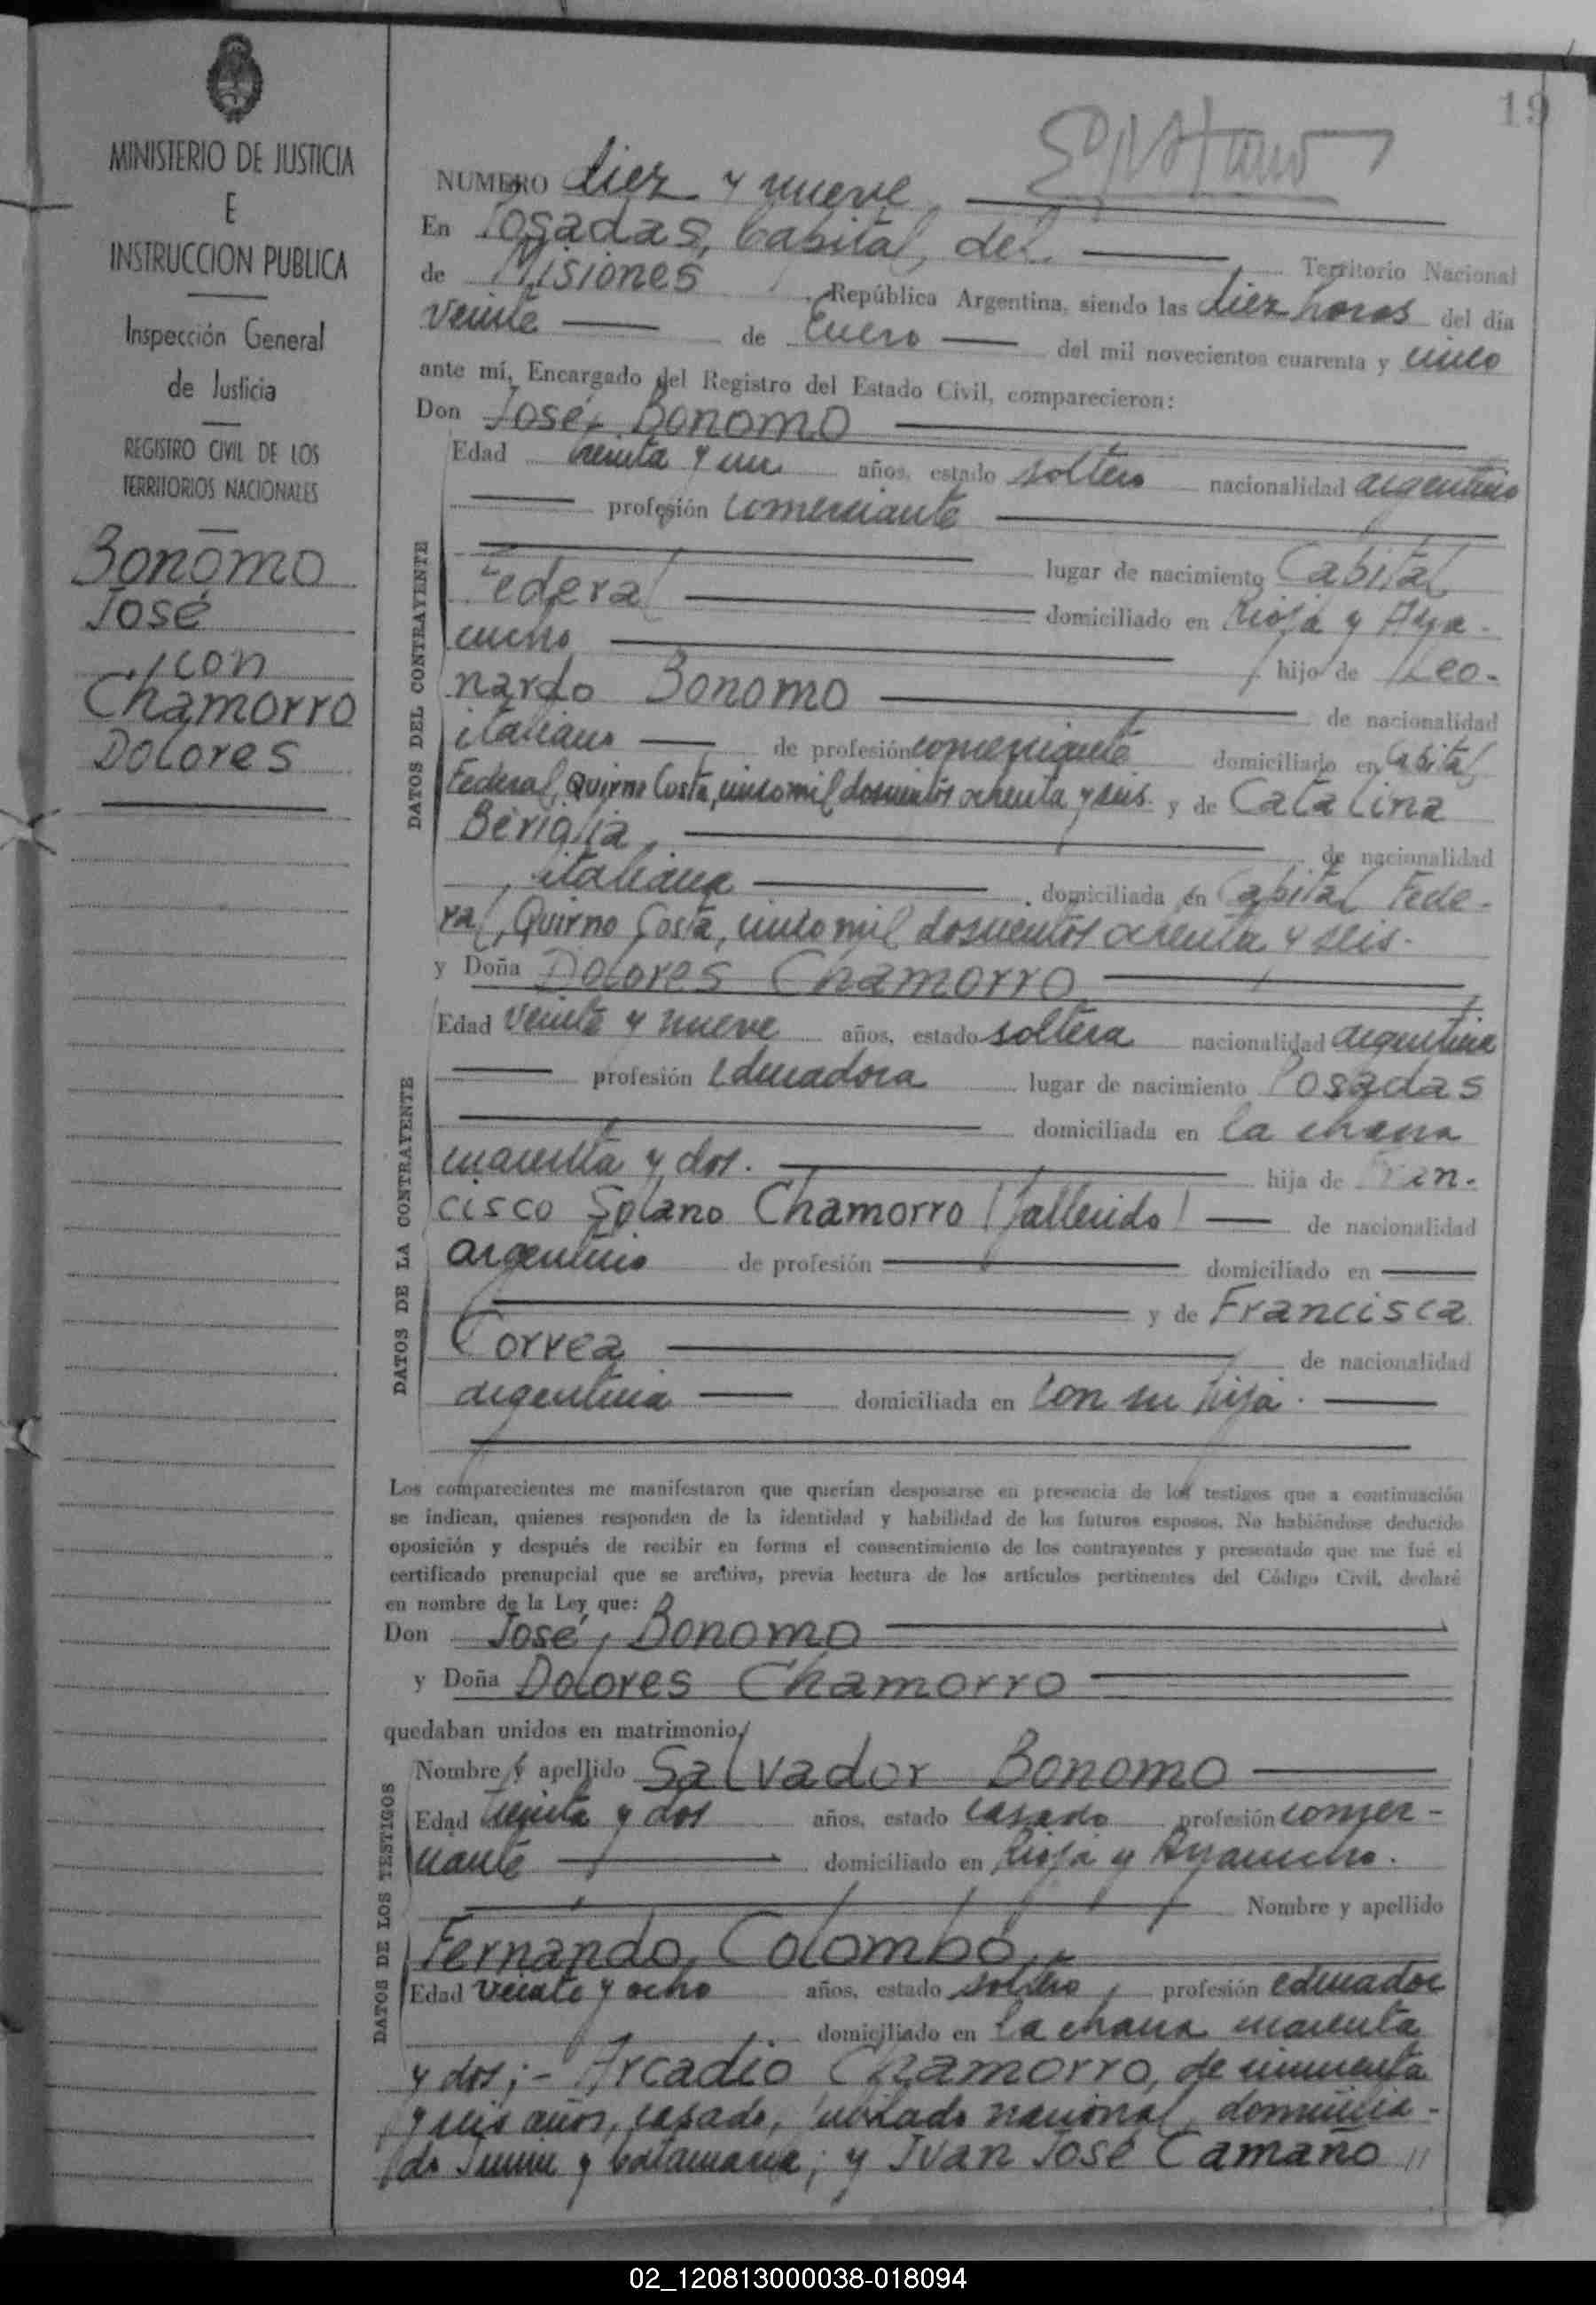 19
MINISTERIO DE JUSTICIA
E
INSTRUCCION PUBLICA
Inspección General
de Justicia
REGISTRO CIVIL DE LOS
TERRITORIOS NACIONALES
Bonomo
José
con
Chamorro
Dolores
NUMERO diez y nueve
En Posadas, Capital, del Territorio Nacional
de Misiones, República Argentina, siendo las diez horas del día
veinte de Enero del mil novecientos cuarenta y cinco
ante mí, Encargado del Registro del Estado Civil, comparecieron:
Don José, Bonomo
DATOS DEL CONTRAYENTE
Edad treinta y un años, estado soltero nacionalidad argentino
profesión comerciante
lugar de nacimiento Capital
Federal domiciliado en Rioja y Aya-
cucho hijo de Leo-
nardo Bonomo de nacionalidad
italiano de profesión comerciante domiciliado en Capital
Federal, Quirno Costa, cinco mil doscientos ochenta y seis y de Catalina
Beriglia de nacionalidad
italiana domiciliada en Capital Fede-
ral, Quirno Costa, cinco mil doscientos ochenta y seis.
y Doña Dolores Chamorro
DATOS DE LA CONTRAYENTE
Edad veinte y nueve años, estado soltera nacionalidad argentina
profesión educadora lugar de nacimiento Posadas
domiciliada en la chacra
cuarenta y dos. hija de Fran-
cisco Solano Chamorro (fallecido) de nacionalidad
argentino de profesión domiciliado en
y de Francisca
Correa de nacionalidad
argentina domiciliada en con su hija.
Los comparecientes me manifestaron que querían desposarse en presencia de los testigos que a continuación
se indican, quienes responden de la identidad y habilidad de los futuros esposos. No habiéndose deducido
oposición y después de recibir en forma el consentimiento de los contrayentes y presentado que me fué el
certificado prenupcial que se archiva, previa lectura de los artículos pertinentes del Código Civil, declaré
en nombre de la Ley que:
Don José, Bonomo
y Doña Dolores Chamorro
quedaban unidos en matrimonio,
DATOS DE LOS TESTIGOS
Nombre y apellido Salvador Bonomo
Edad treinta y dos años, estado casado profesión comer-
ciante domiciliado en Rioja y Ayacucho.
Nombre y apellido
Fernando Colombo
Edad veinte y ocho años, estado soltero, profesión educador
domiciliado en la chacra cuarenta
y dos; - Arcadio Chamorro, de cincuenta
y seis años, casado, jubilado nacional, domicilia-
do Junin y Catamarca; y Ivan José Camaño //
02_120813000038-018094